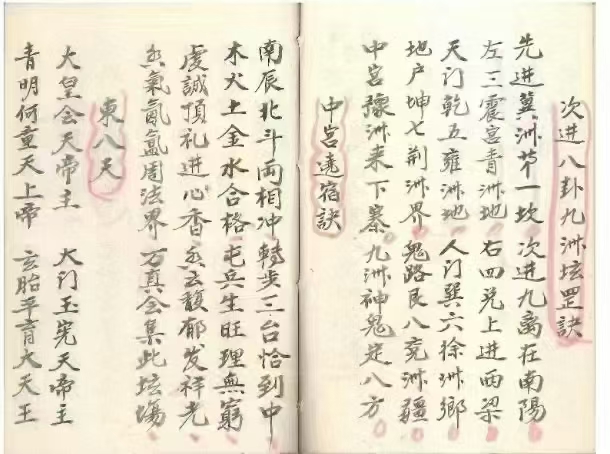 次进八卦九洲坛罡訣
先进冀洲苐一坟 次进九離在南陽
左三震宫青洲地 右四兑上进西梁
天门乾五雍洲地 人门巽六徐洲鄉
地户坤七荆洲界 鬼路艮八兖洲疆
中宫豫洲来下寨 九洲神鬼定八方
中宫遶宿訣
南辰北斗両相冲 轉步三台恰到中
木火土金水合格 屯兵生旺理無窮
虔誠頂礼进心香 香云馥郁发祥光
香氣氤氲周法界 万真会集此坛場
東八天
大皇会天帝主 大门玉完天帝主
青明何重天上帝 玄胎平育大天王